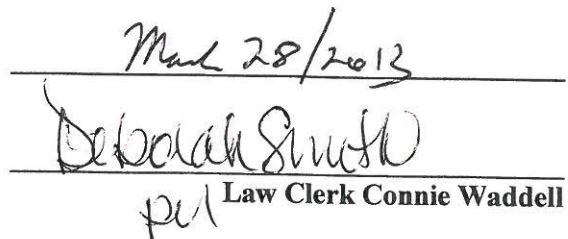 March 28/2013
Deborah Smith
per Law Clerk Connie Waddell